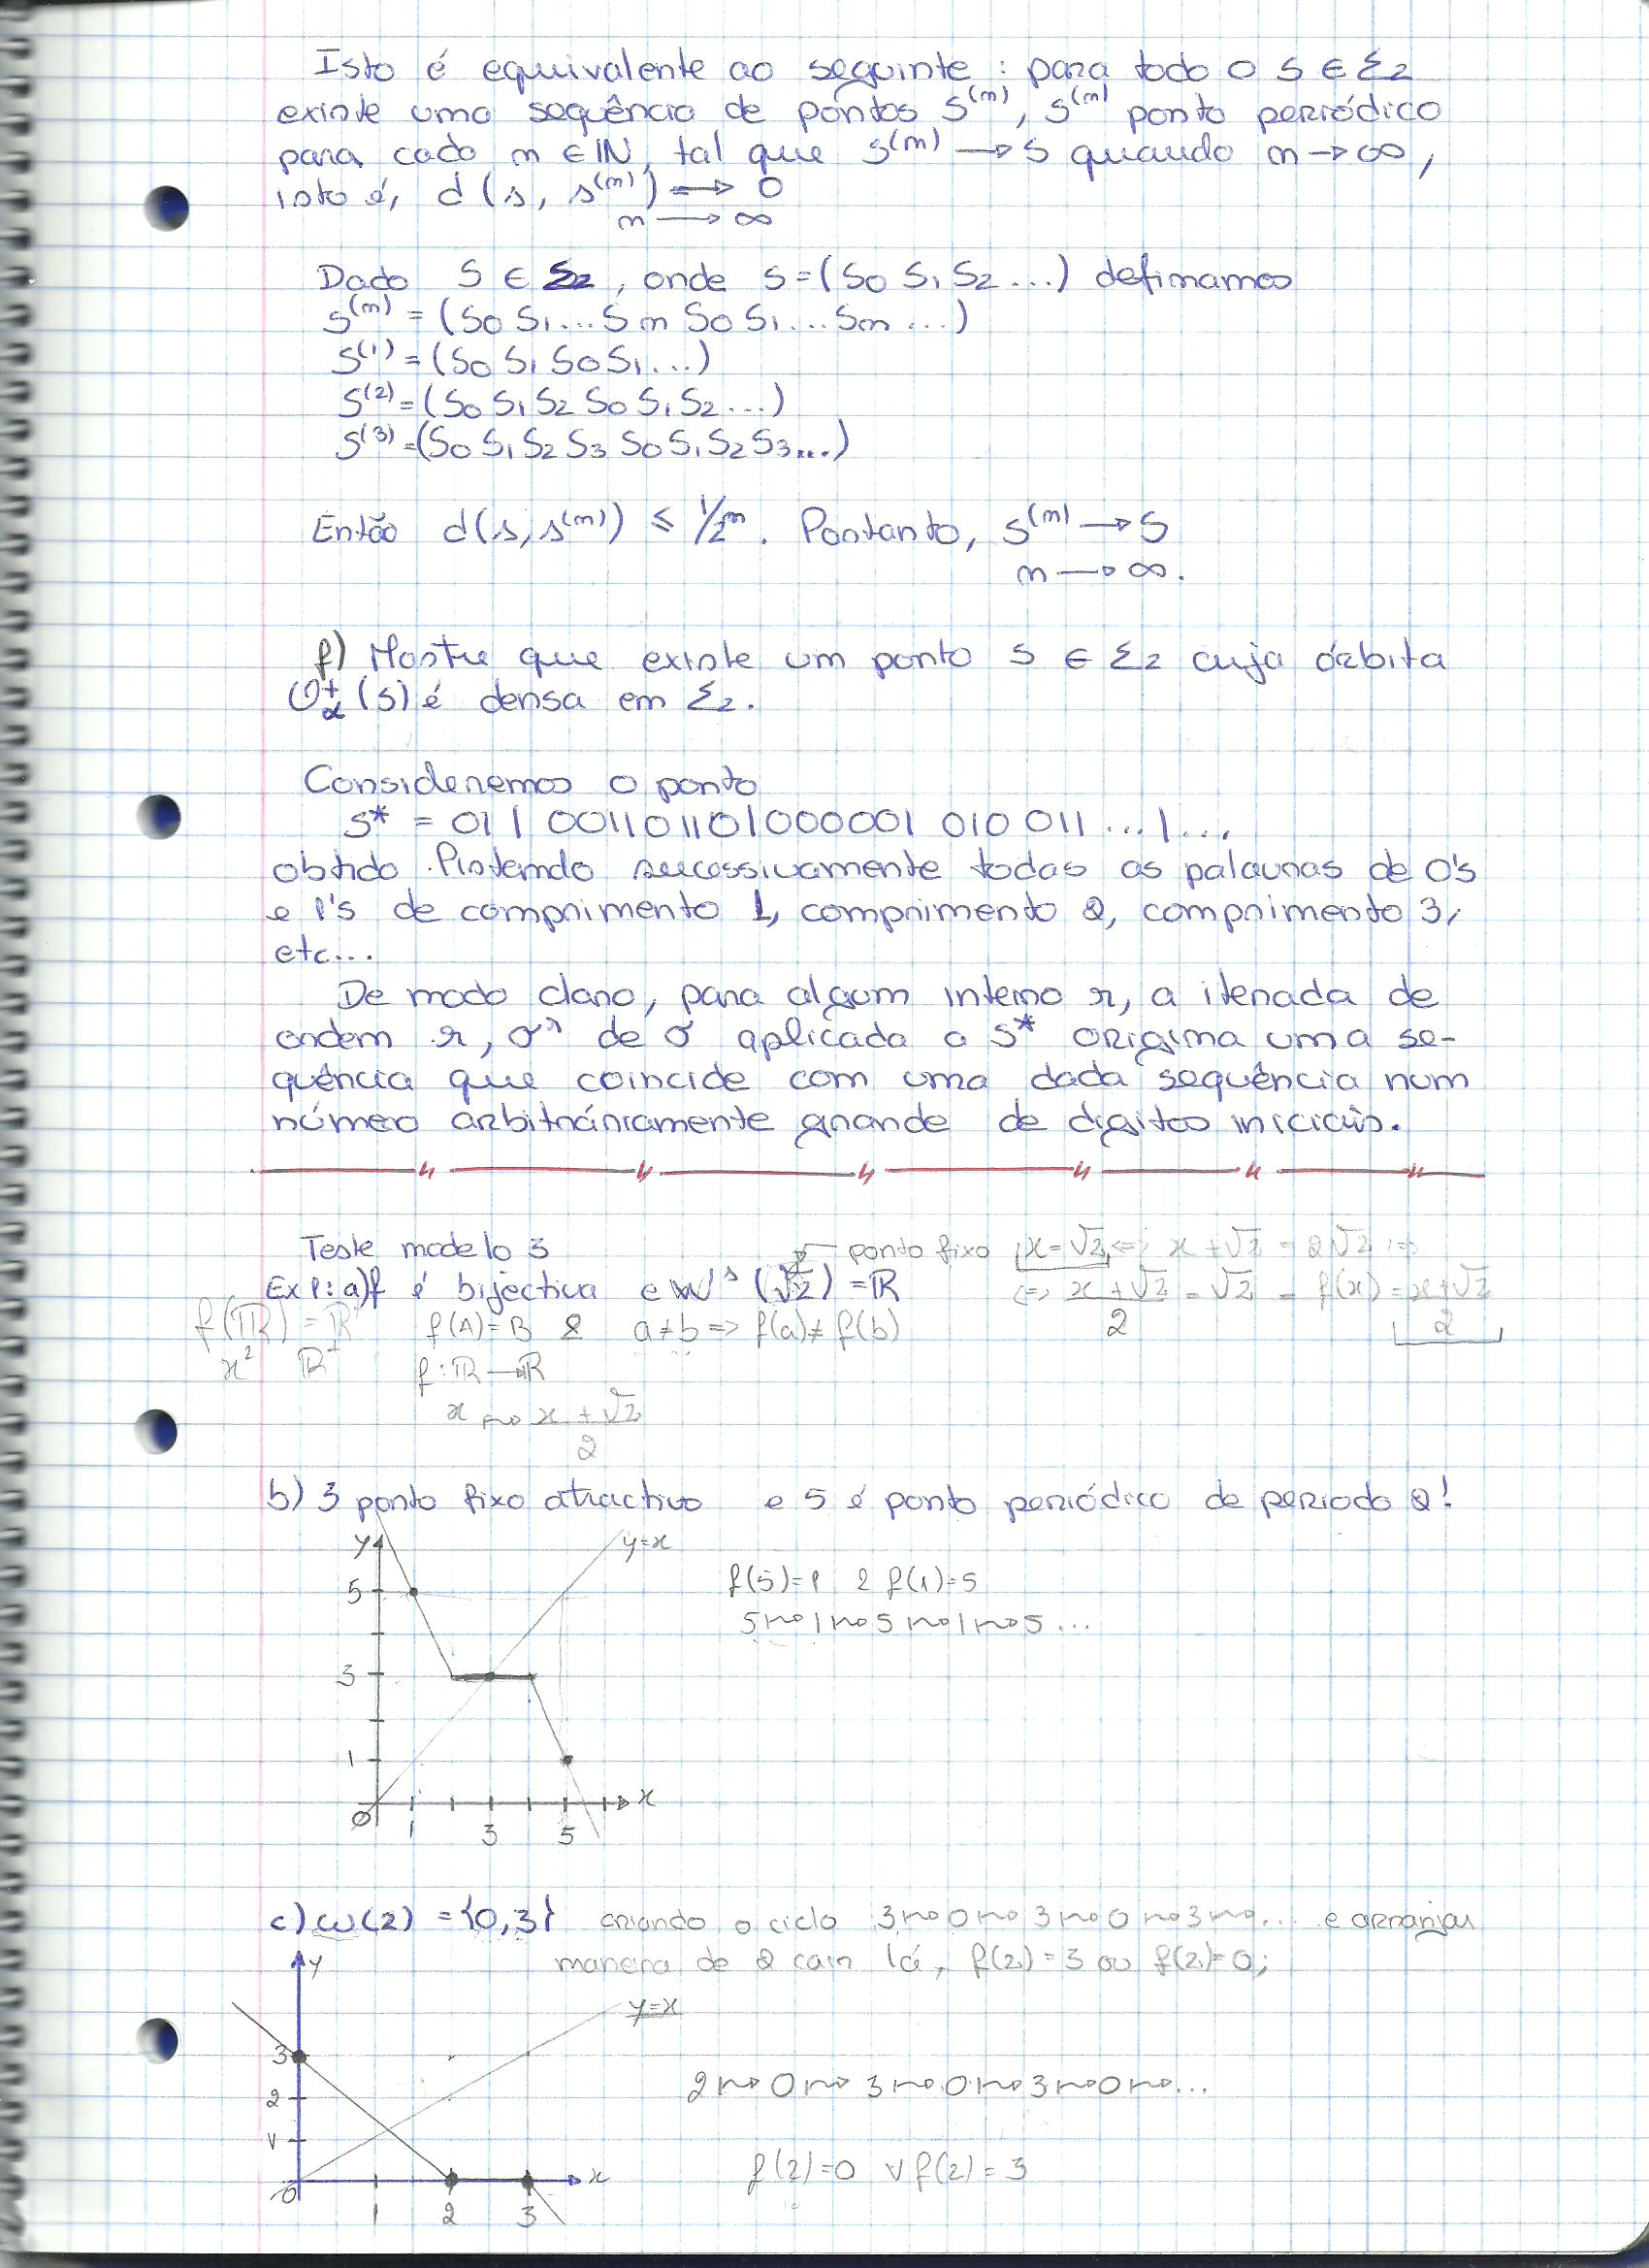 Isto é equivalente ao seguinte: para todo o s ∈ Σ2
existe uma sequência de pontos s^(n), s^(n) ponto periódico
para cada n ∈ ℕ, tal que s^(n) → s quando n → ∞,
isto é, d(s, s^(n)) → 0
n → ∞
Dado s ∈ Σ2, onde s = (s0 s1 s2 ...) definamos
s^(n) = (s0 s1 ... sn s0 s1 ... sn ...)
s^(1) = (s0 s1 s0 s1 ...)
s^(2) = (s0 s1 s2 s0 s1 s2 ...)
s^(3) = (s0 s1 s2 s3 s0 s1 s2 s3 ...)
Então d(s, s^(n)) ≤ 1/2^n. Portanto, s^(n) → s
n → ∞.
f) Mostre que existe um ponto s ∈ Σ2 cuja órbita
O^+_α(s) é densa em Σ2.
Consideremos o ponto
s* = 01 | 00110110 1000001 010 011 ... | ...
obtido listando sucessivamente todas as palavras de 0's
e 1's de comprimento 1, comprimento 2, comprimento 3,
etc...
De modo claro, para algum inteiro r, a iterada de
ordem r, σ^r de σ aplicada a s* origina uma se-
quência que coincide com uma dada sequência num
número arbitráriamente grande de digitos iniciais.
Teste modelo 3
ponto fixo x = √2 ⇔ x + √2 = 2√2 ⇔
Ex 1: a) f é bijectiva e W^s (√2) = ℝ
⇔ x + √2 / 2 = √2 = f(x) = x + √2 / 2
f(ℝ) = ℝ f(A) = B & a ≠ b ⇒ f(a) ≠ f(b)
x² ℝ+ f: ℝ → ℝ
x ⇝ x + √2 / 2
b) 3 ponto fixo atractivo e 5 é ponto periódico de periodo 2!
y y=x
5 f(5)=1 e f(1)=5
5 ⇝ 1 ⇝ 5 ⇝ 1 ⇝ 5 ...
3
1
0 x
1 3 5
c) ω(2) = {0,3} criando o ciclo 3 ⇝ 0 ⇝ 3 ⇝ 0 ⇝ 3 ⇝ ... e arranjar
maneira de 2 cair lá, f(2) = 3 ou f(2) = 0;
y
y=x
3
2 2 ⇝ 0 ⇝ 3 ⇝ 0 ⇝ 3 ⇝ 0 ⇝ ...
1
x f(2) = 0 ∨ f(2) = 3
0
1 2 3